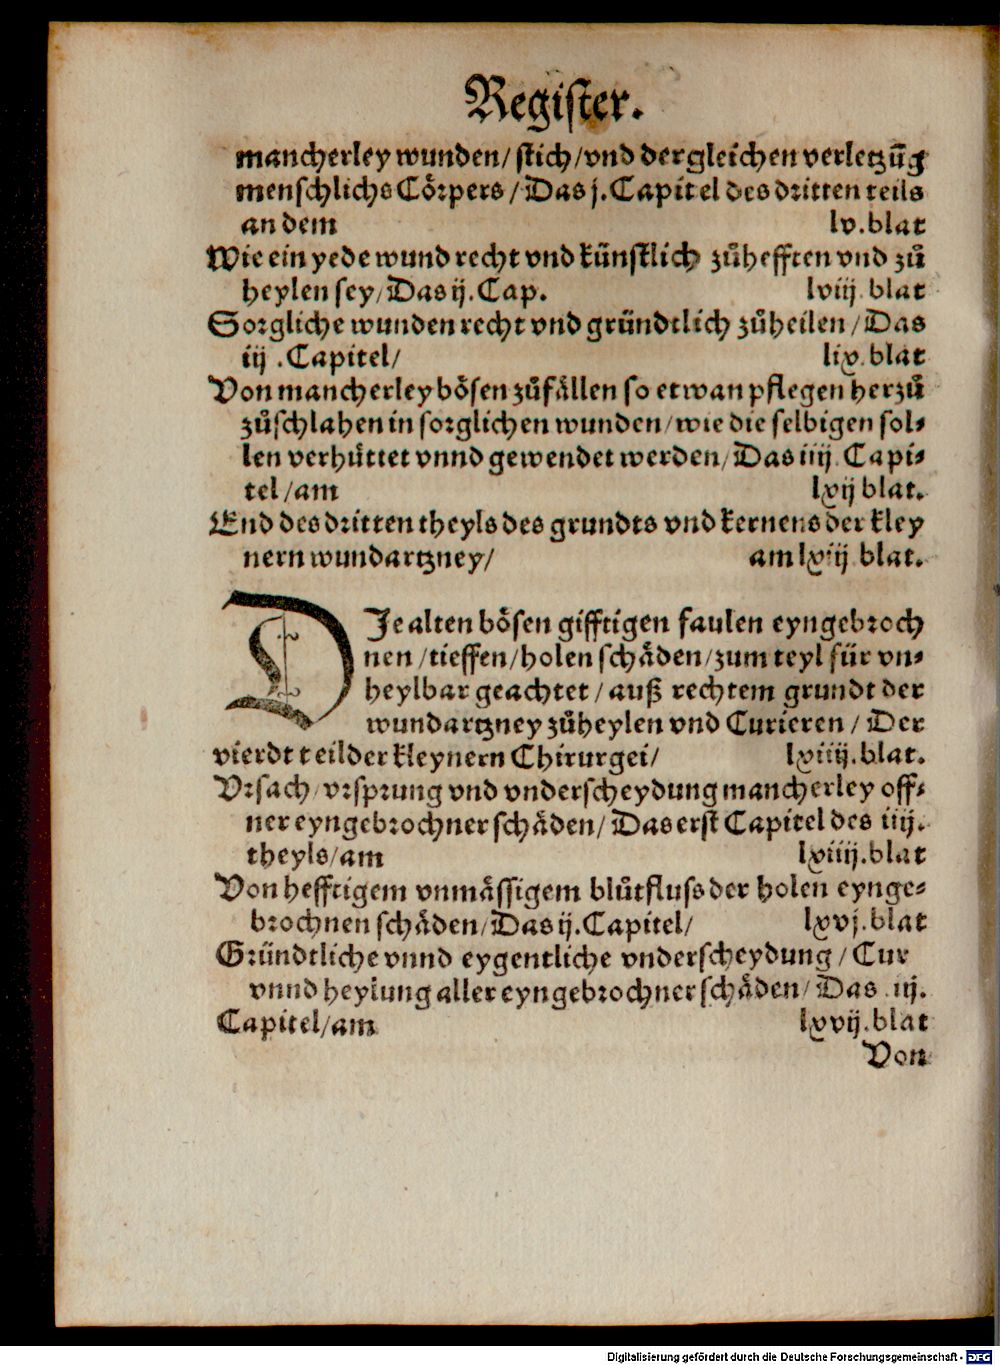 Register.
mancherley wunden/ stich/ vnd dergleichen verletzūg
menschlichs Cörpers/ Das j. Capitel des dritten teils
an dem lv. blat
Wie ein yede wund recht vnd künstlich zůhefften vnd zů
heylen sey/ Das ij. Cap. lviij. blat
Sorgliche wunden recht vnd gründtlich zůheilen/ Das
iij .Capitel/ lix. blat
Von mancherley bösen zůfällen so etwan pflegen herzů
zůschlahen in sorglichen wunden/ wie die selbigen sol⸗
len verhüttet vnnd gewendet werden/ Das iiij. Capi⸗
tel/ am lxij blat.
End des dritten theyls des grundts vnd kernens der kley
nern wundartzney/ am lxiij. blat.
DJe alten bösen gifftigen faulen eyngebroch
nen/ tieffen/ holen schäden/ zum teyl für vn⸗
heylbar geachtet/ auß rechtem grundt der
wundartzney zůheylen vnd Curieren/ Der
vierdt teil der kleynern Chirurgei/ lxiiij. blat.
Vrsach/ vrsprung vnd vnderscheydung mancherley off⸗
ner eyngebrochner schäden/ Das erst Capitel des iiij.
theyls/ am lxiiij. blat
Von hefftigem vnmässigem blůtfluss der holen eynge⸗
brochnen schäden/ Das ij. Capitel/ lxvj. blat
Gründtliche vnnd eygentliche vnderscheydung/ Cur
vnnd heylung aller eyngebrochner schäden/ Das iij.
Capitel/ am lxvij. blat
Von
Digitalisierung gefördert durch die Deutsche Forschungsgemeinschaft - DFG